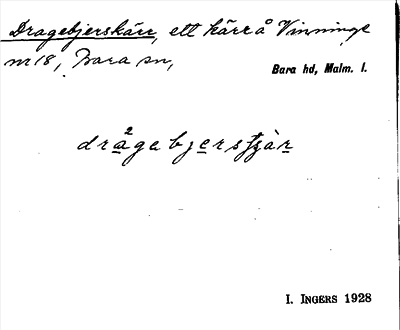 Dragebjerskärr, ett kärr å Vinninge
nr 18, Bara sn,
Bara hd, Malm. l.
drågebjersʃȷär
I. INGERS 1928